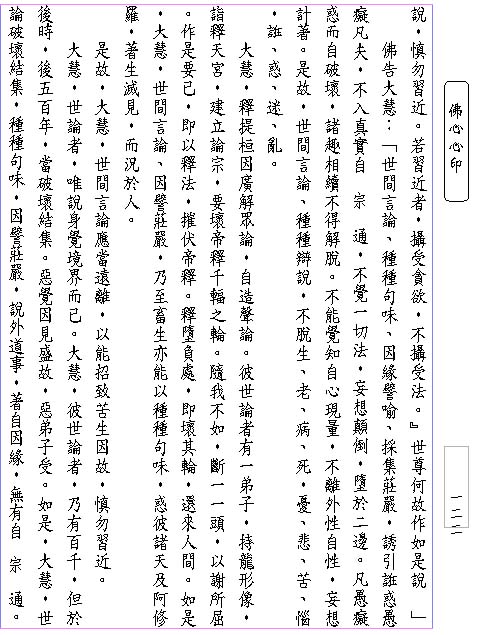 佛心心印
一二二
說，慎勿習近。若習近者，攝受貪欲，不攝受法。』世尊何故作如是說　」
佛告大慧：「世間言論、種種句味、因緣譬喻、採集莊嚴，誘引誑惑愚
癡凡夫，不入真實自　宗　通，不覺一切法，妄想顛倒，墮於二邊。凡愚癡
惑而自破壞，諸趣相續不得解脫。不能覺知自心現量，不離外性自性，妄想
計著。是故，世間言論、種種辯說，不脫生、老、病、死，憂、悲、苦、惱
，誑、惑、迷、亂。
大慧，釋提桓因廣解眾論，自造聲論。彼世論者有一弟子，持龍形像，
詣釋天宮，建立論宗，要壞帝釋千輻之輪。隨我不如，斷一一頭，以謝所屈
。作是要已，即以釋法，摧伏帝釋。釋墮負處，即壞其輪，還來人間。如是
，大慧，世間言論、因譬莊嚴，乃至畜生亦能以種種句味，惑彼諸天及阿修
羅，著生滅見，而況於人。
是故，大慧，世間言論應當遠離，以能招致苦生因故，慎勿習近。
大慧，世論者，唯說身覺境界而已。大慧，彼世論者，乃有百千，但於
後時，後五百年，當破壞結集。惡覺因見盛故，惡弟子受。如是，大慧，世
論破壞結集，種種句味，因譬莊嚴，說外道事，著自因緣，無有自　宗　通。